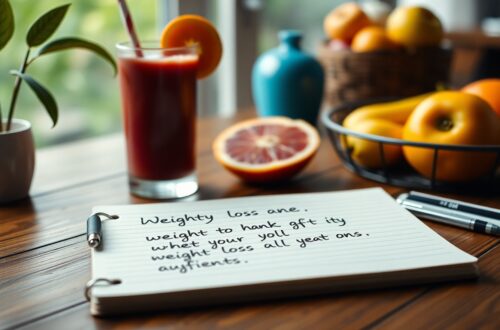 Weighty loss ane.
weight to hank gft ity
whet your yoll for
weight loss all yeat ons.
augfients.